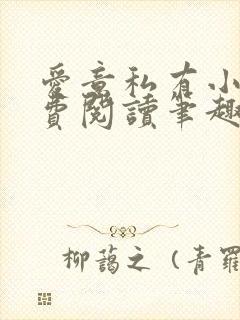 愛意私有小
費閱讀筆趣
柳藹之（青羅